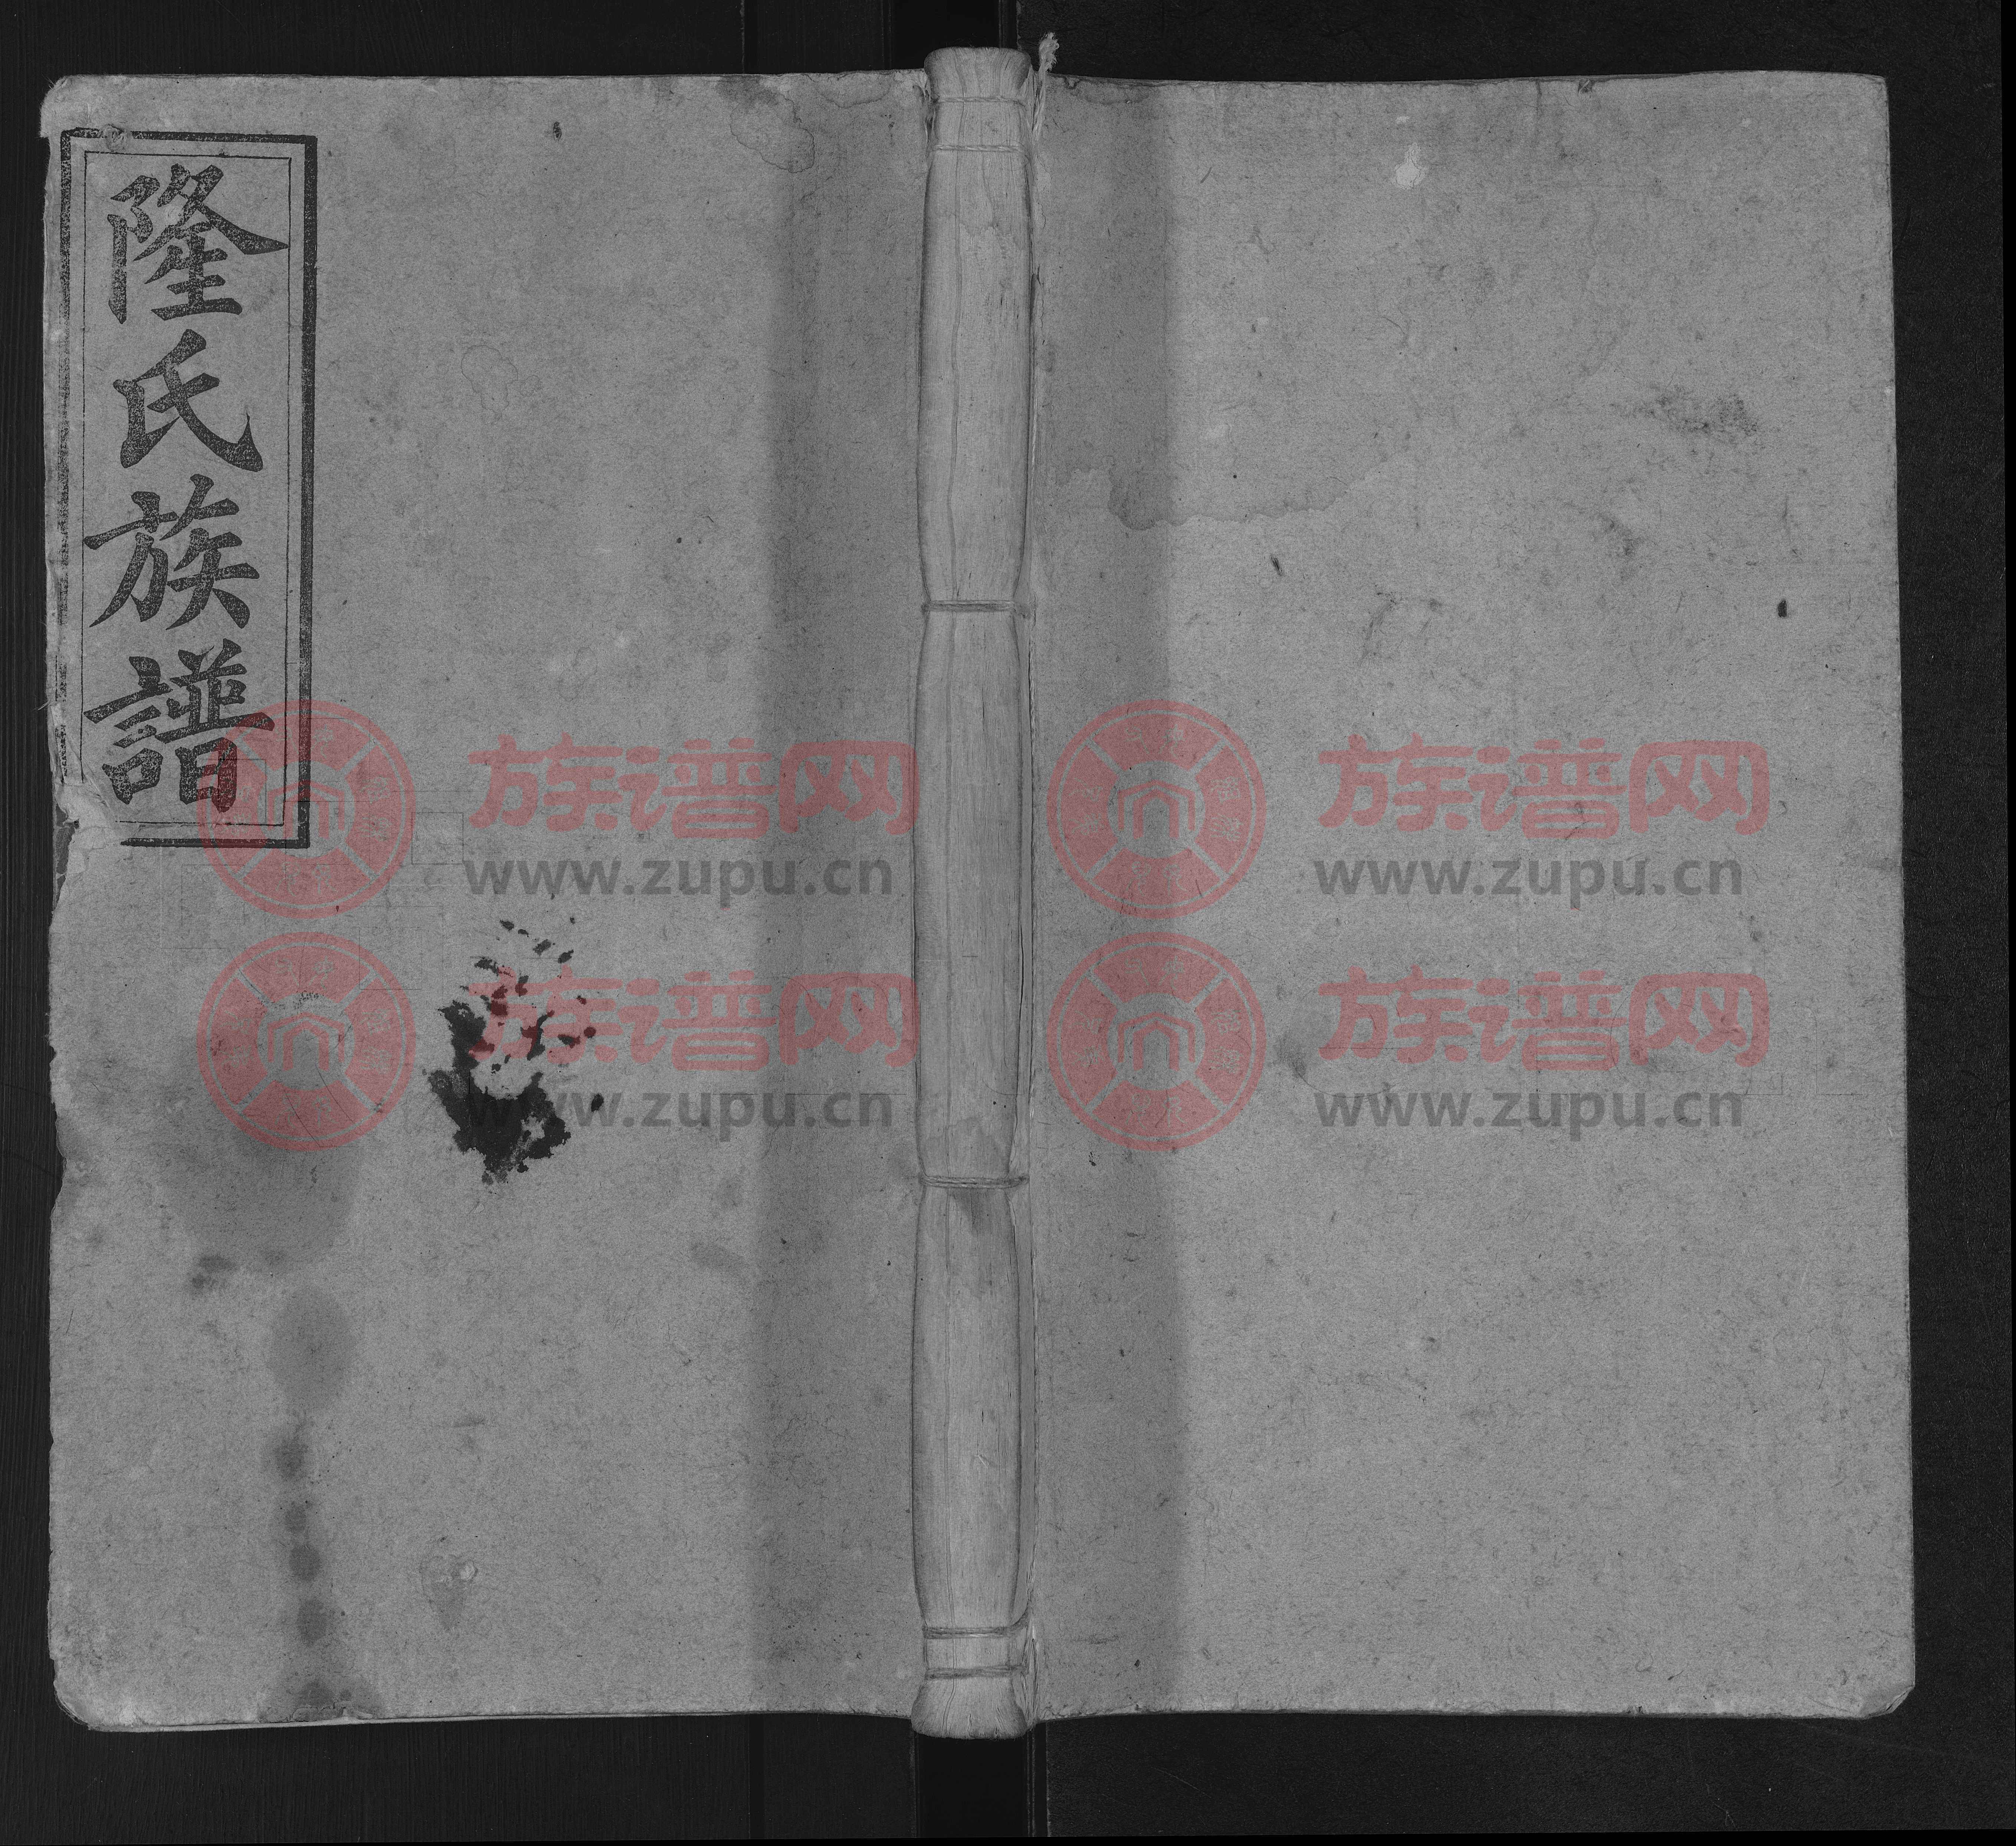 隆氏族譜
族谱网
www.zupu.cn
族谱网
www.zupu.cn
族谱网
www.zupu.cn
族谱网
www.zupu.cn